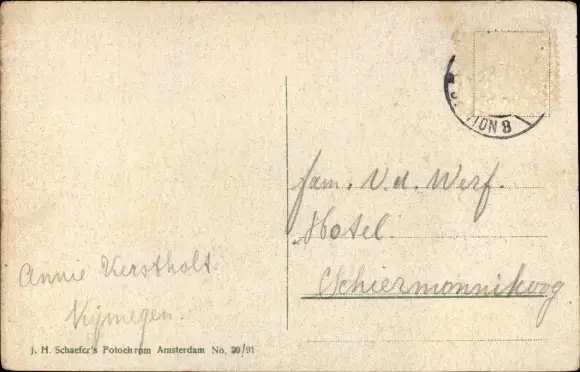 ION 8
fam. V. d. Werf.
Hotel
Schiermonnikoog
Annie Kerstholt.
Nijmegen.
J. H. Schaefer's Fotochrom Amsterdam No. 20/91